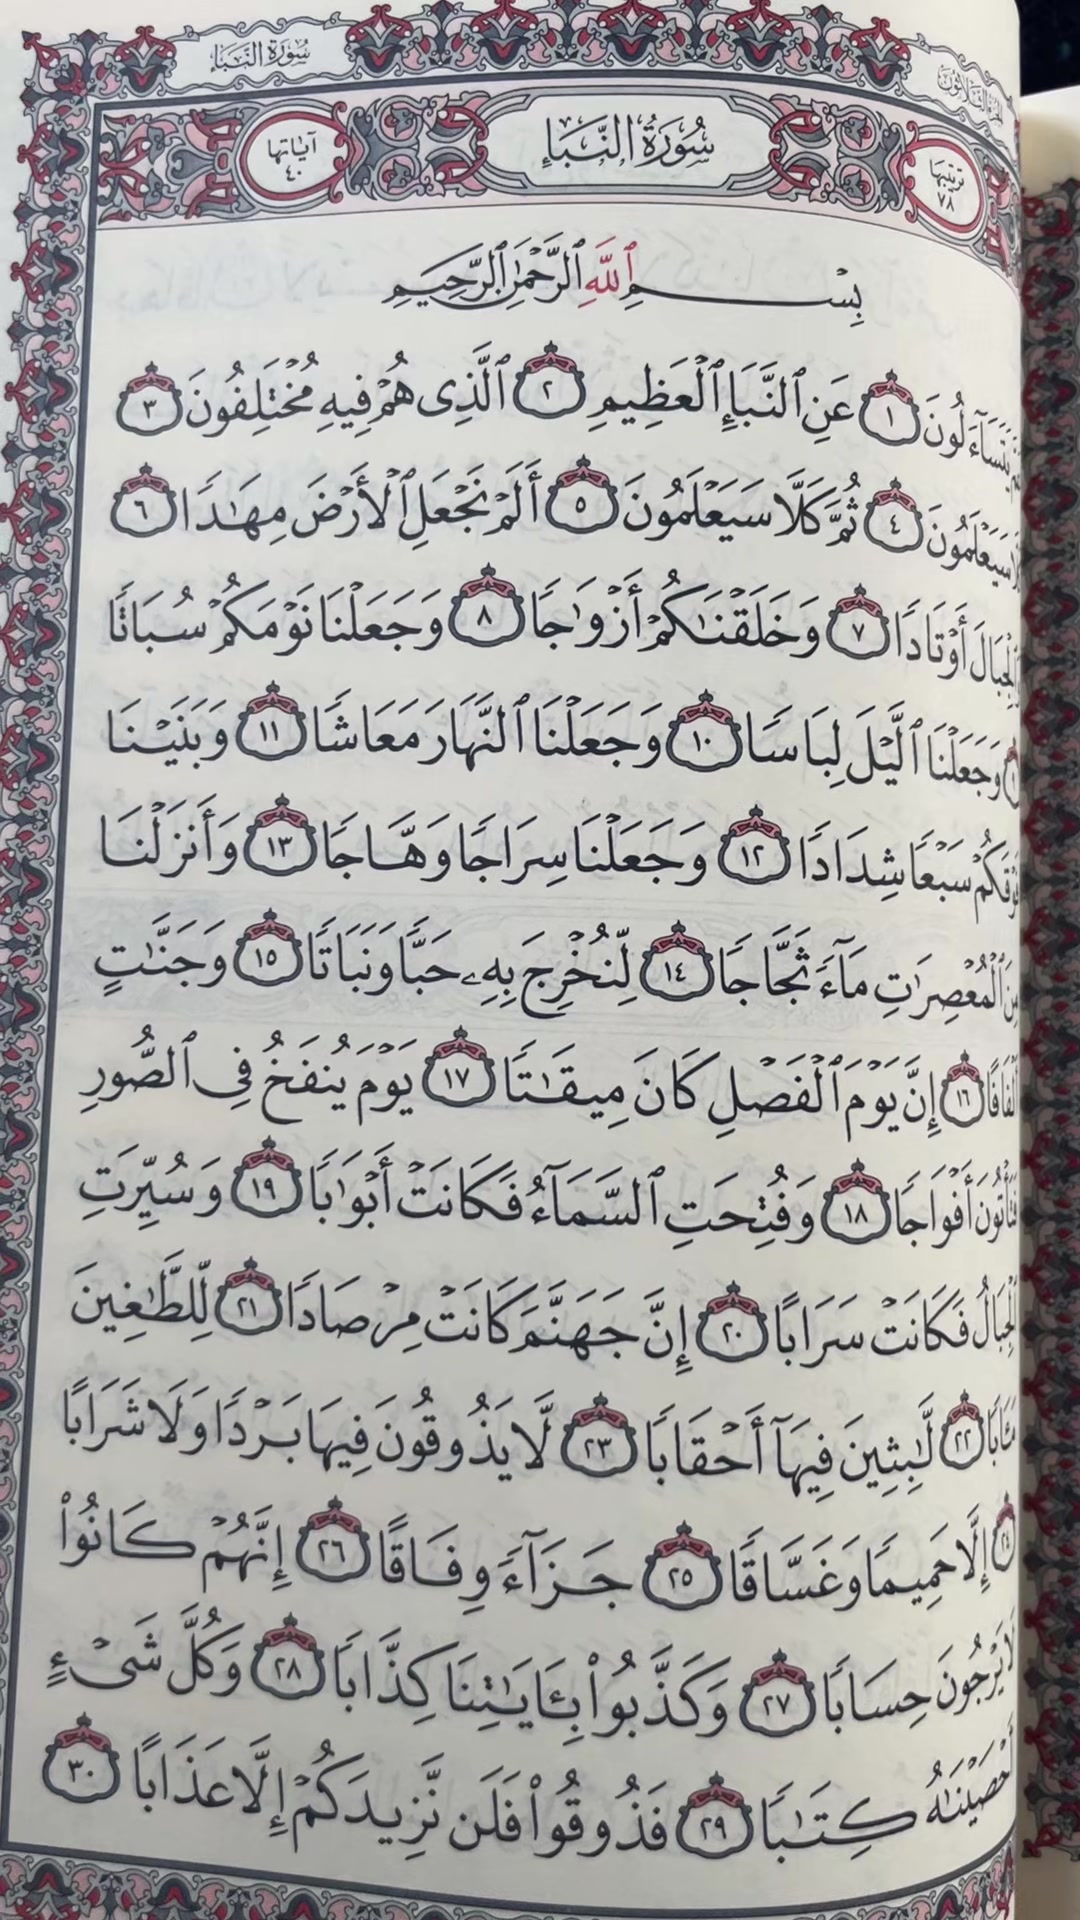 سُورَةُ النَّبَإِ
الجزء الثلاثون
ترتيبها ٧٨
سُورَةُ النَّبَإِ
آياتها ٤٠
بِسْمِ ٱللَّهِ ٱلرَّحْمَٰنِ ٱلرَّحِيمِ
يَتَسَآءَلُونَ ١ عَنِ ٱلنَّبَإِ ٱلْعَظِيمِ ٢ ٱلَّذِى هُمْ فِيهِ مُخْتَلِفُونَ ٣
سَيَعْلَمُونَ ٤ ثُمَّ كَلَّا سَيَعْلَمُونَ ٥ أَلَمْ نَجْعَلِ ٱلْأَرْضَ مِهَٰدًا ٦
ٱلْجِبَالَ أَوْتَادًا ٧ وَخَلَقْنَٰكُمْ أَزْوَٰجًا ٨ وَجَعَلْنَا نَوْمَكُمْ سُبَاتًا
وَجَعَلْنَا ٱلَّيْلَ لِبَاسًا ١٠ وَجَعَلْنَا ٱلنَّهَارَ مَعَاشًا ١١ وَبَنَيْنَا
فَوْقَكُمْ سَبْعًا شِدَادًا ١٢ وَجَعَلْنَا سِرَاجًا وَهَّاجًا ١٣ وَأَنزَلْنَا
مِنَ ٱلْمُعْصِرَٰتِ مَآءً ثَجَّاجًا ١٤ لِّنُخْرِجَ بِهِۦ حَبًّا وَنَبَاتًا ١٥ وَجَنَّٰتٍ
أَلْفَافًا ١٦ إِنَّ يَوْمَ ٱلْفَصْلِ كَانَ مِيقَٰتًا ١٧ يَوْمَ يُنفَخُ فِى ٱلصُّورِ
فَتَأْتُونَ أَفْوَاجًا ١٨ وَفُتِحَتِ ٱلسَّمَآءُ فَكَانَتْ أَبْوَٰبًا ١٩ وَسُيِّرَتِ
ٱلْجِبَالُ فَكَانَتْ سَرَابًا ٢٠ إِنَّ جَهَنَّمَ كَانَتْ مِرْصَادًا ٢١ لِّلطَّٰغِينَ
مَـَٔابًا ٢٢ لَّٰبِثِينَ فِيهَآ أَحْقَابًا ٢٣ لَّا يَذُوقُونَ فِيهَا بَرْدًا وَلَا شَرَابًا
٢٤ إِلَّا حَمِيمًا وَغَسَّاقًا ٢٥ جَزَآءً وِفَاقًا ٢٦ إِنَّهُمْ كَانُوا۟
لَا يَرْجُونَ حِسَابًا ٢٧ وَكَذَّبُوا۟ بِـَٔايَٰتِنَا كِذَّابًا ٢٨ وَكُلَّ شَىْءٍ
أَحْصَيْنَٰهُ كِتَٰبًا ٢٩ فَذُوقُوا۟ فَلَن نَّزِيدَكُمْ إِلَّا عَذَابًا ٣٠